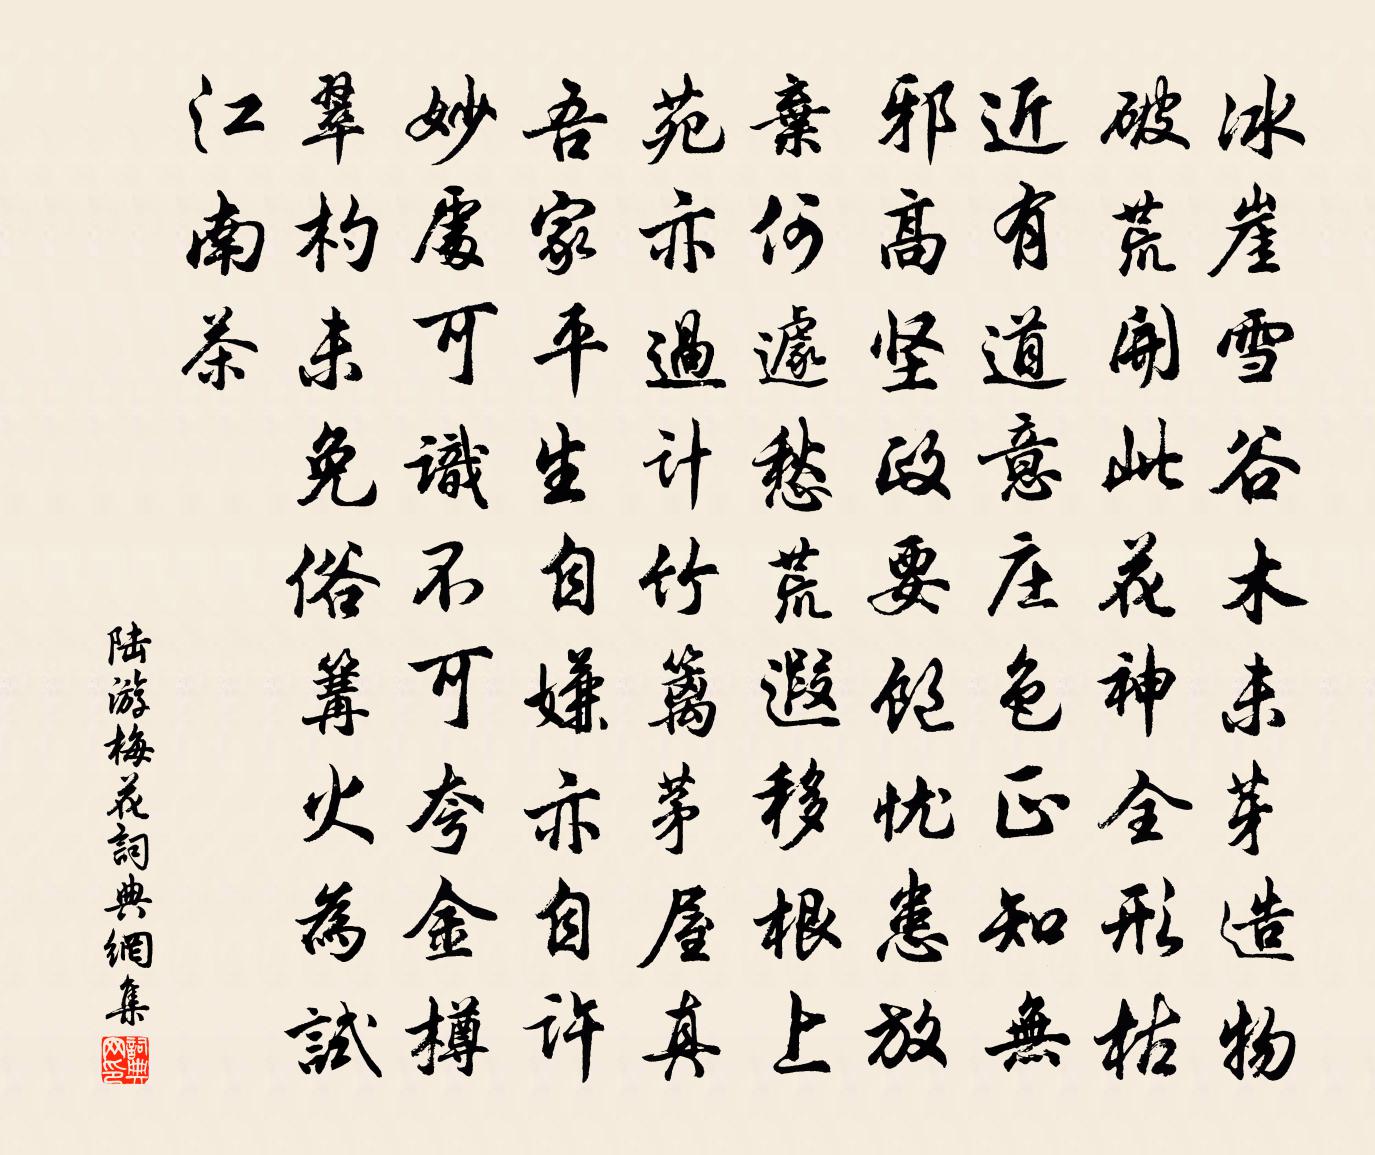 冰崖雪谷木未芽造物
破荒開此花神全形枯
近有道意庄色正知無
邪高坚政要飽忧患放
棄何遽愁荒遐移根上
苑亦過計竹籬茅屋真
吾家平生自嫌亦自許
妙處可識不可夸金樽
翠杓未免俗篝火為試
江南茶
陆游梅花詞典網集
詞典网印